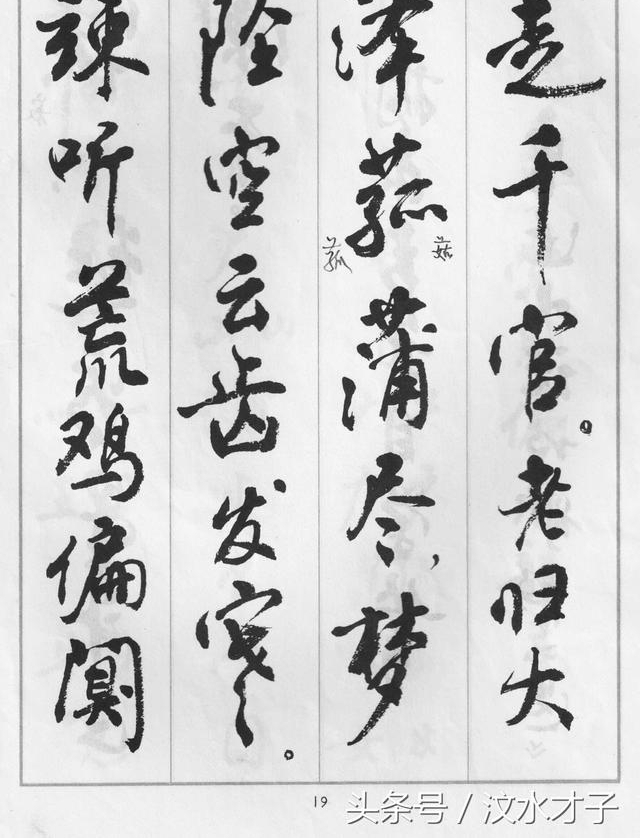 走千官。老归大
泽菰蒲尽，梦
菇
菰
坠空云齿发寒。
竦听荒鸡偏阒
19
头条号 / 汶水才子